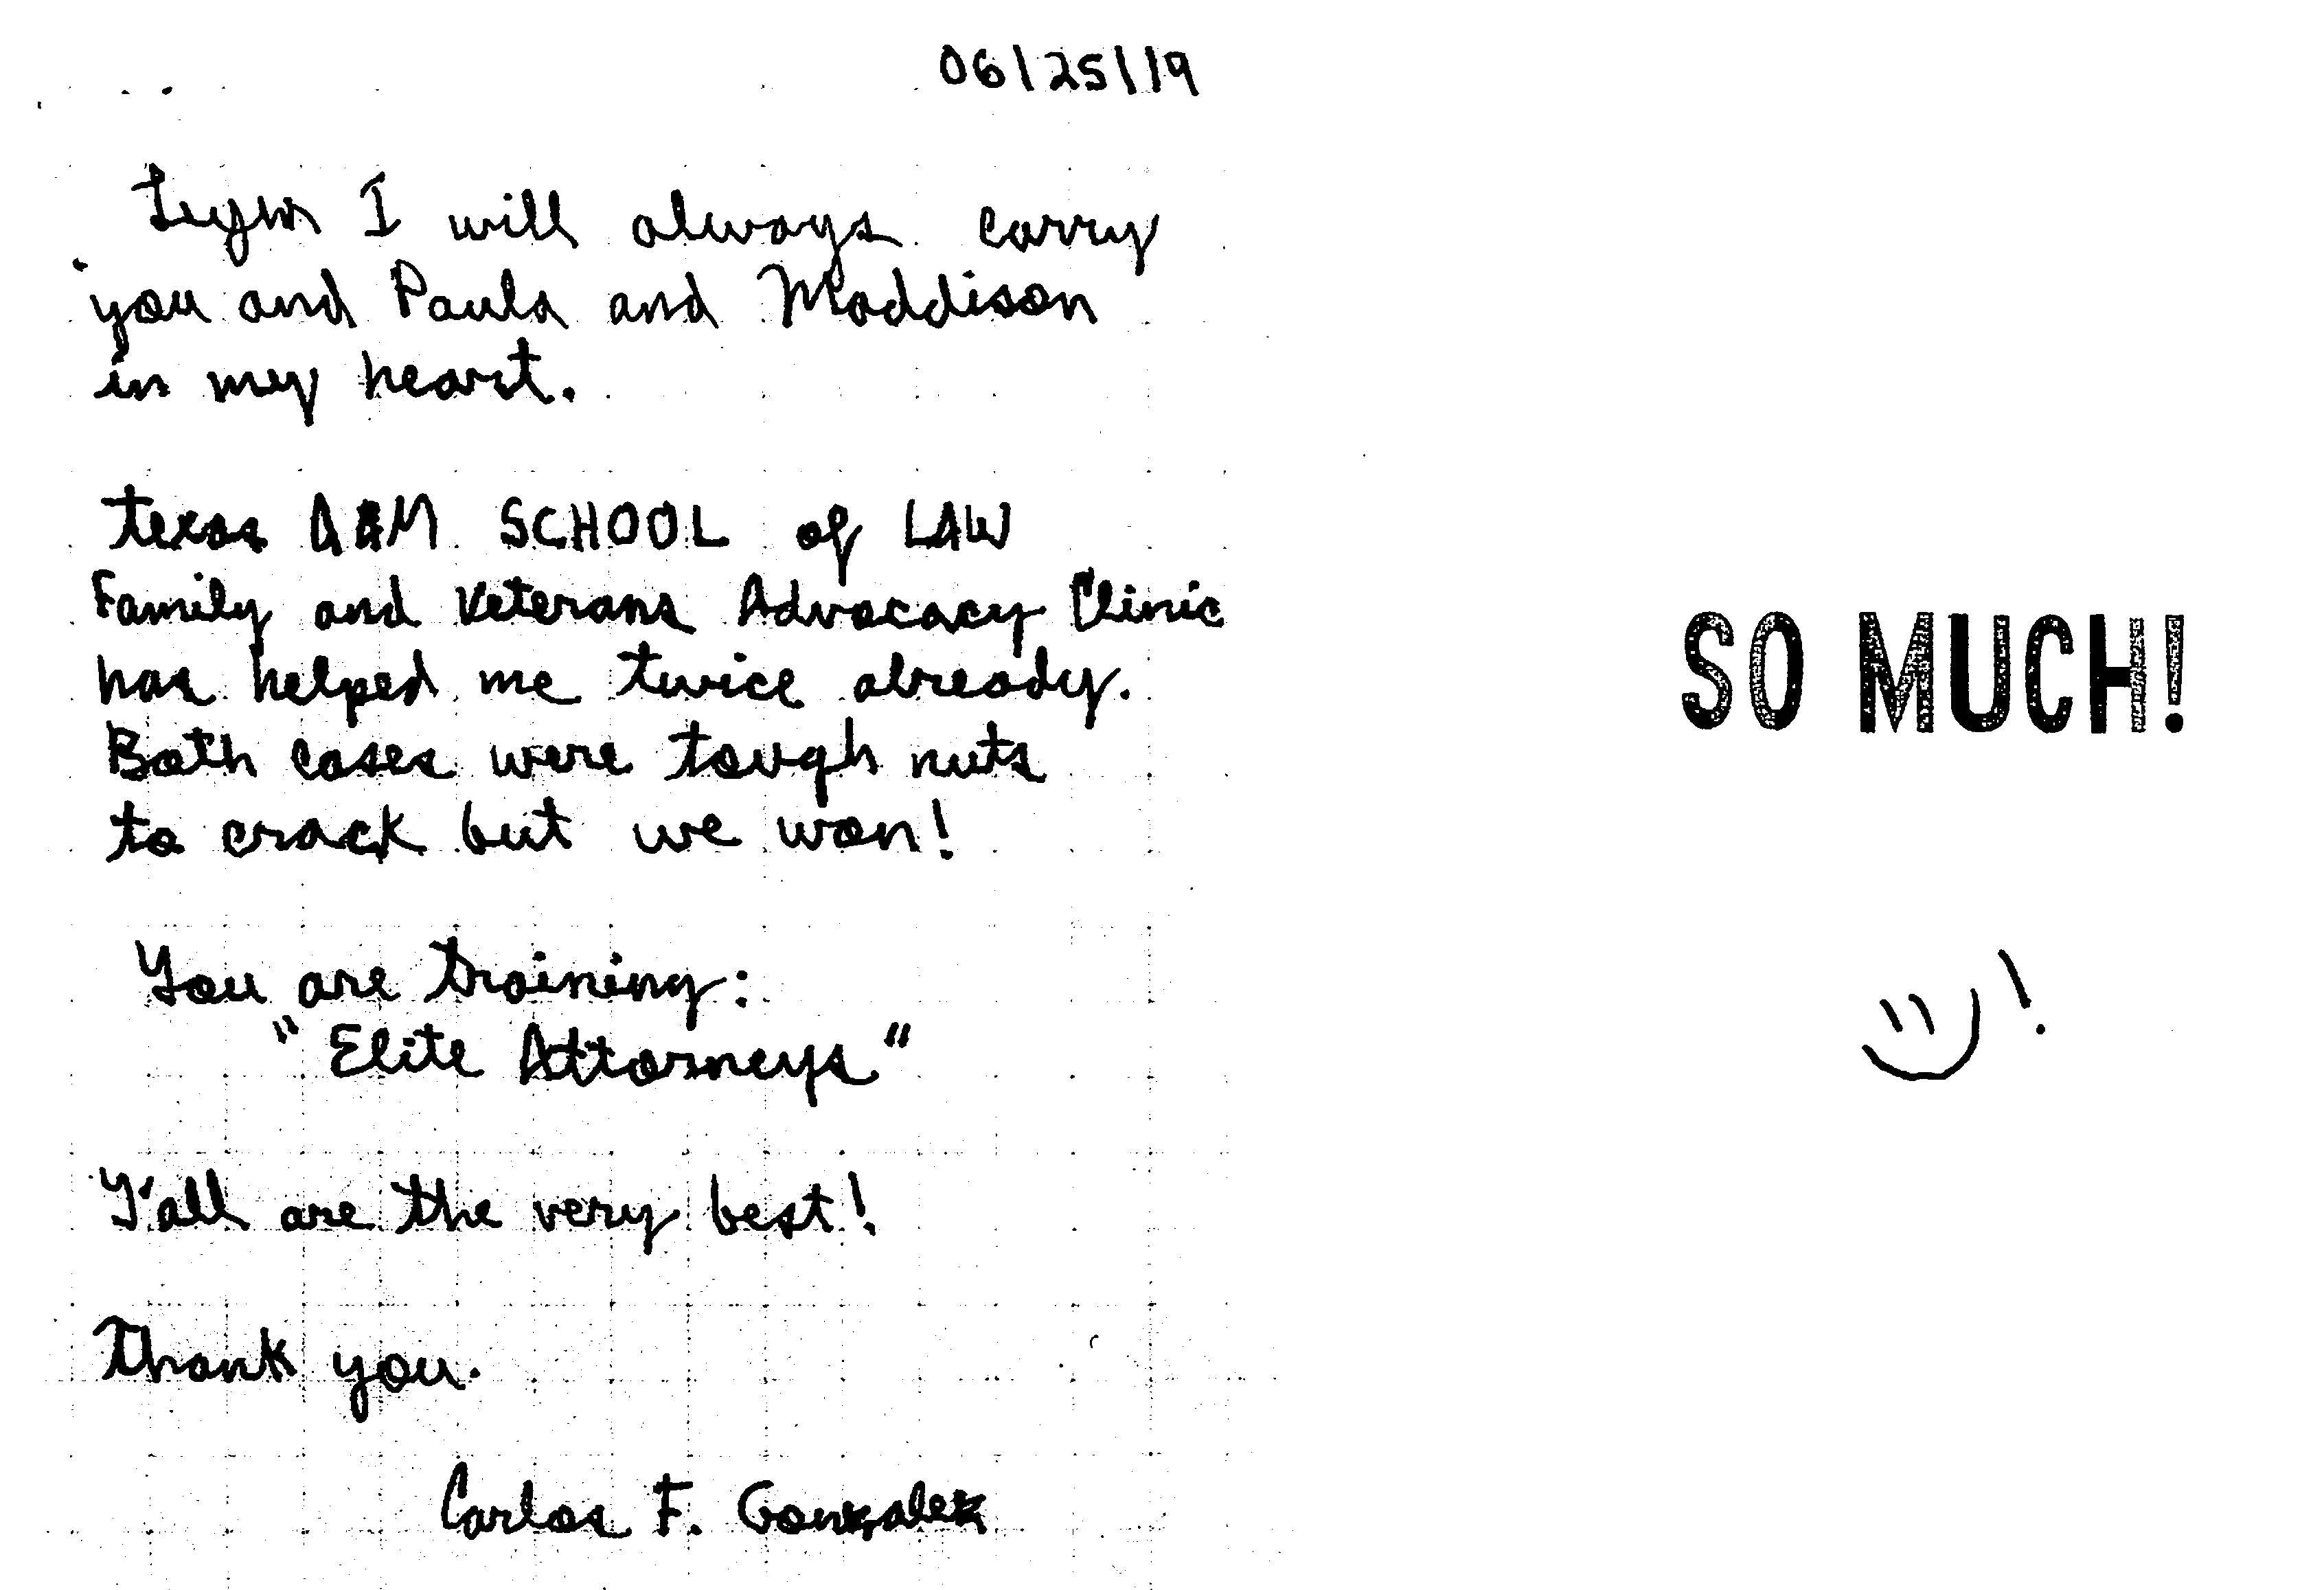 06/25/19
I will always carry
you and Paula and Maddison
in my heart.
Texas A&M SCHOOL of LAW
Family and Veterans Advocacy Clinic
has helped me twice already.
Both cases were tough nuts
to crack but we won!
You are training:
"Elite Attorneys"
Y'all are the very best!
Thank you.
Carlos F. Gonzalez
SO MUCH!
!